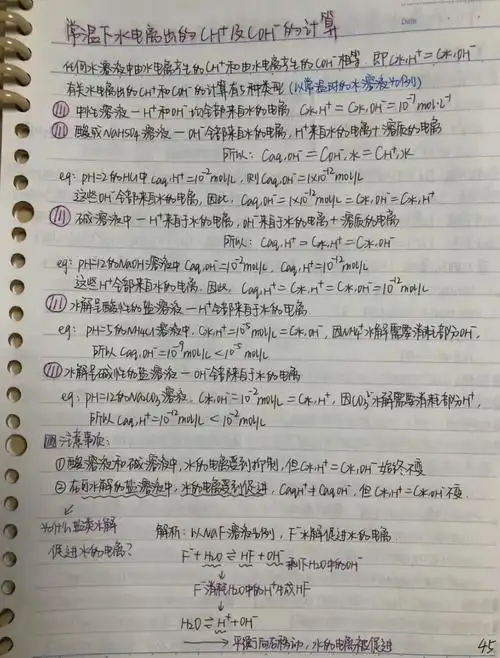 常温下水电离出的CH⁺及COH⁻的计算
Date
任何水溶液中由水电离产生的CH⁺和由水电离产生的COH⁻相等，即C水,H⁺=C水,OH⁻
有关水电离出的CH⁺和COH⁻的计算有5种类型（以常温时的水溶液为例）
中性溶液—H⁺和OH⁻均全部来自水的电离，C水,H⁺=C水,OH⁻=10⁻⁷mol·L⁻¹
酸或NaHSO4溶液—OH⁻全部来自水的电离，H⁺来自水的电离+溶质的电离
所以：Caq,OH⁻=COH⁻,水=CH⁺,水
eg：pH=2的HCl中Caq,H⁺=10⁻²mol/L，则Caq,OH⁻=1×10⁻¹²mol/L
这些OH⁻全部来自水的电离，因此，Caq,OH⁻=1×10⁻¹²mol/L=C水,OH⁻=C水,H⁺
碱溶液中—H⁺来自于水的电离，OH⁻来自于水的电离+溶质的电离
所以：Caq,H⁺=C水,H⁺=C水,OH⁻
eg：pH=12的NaOH溶液中Caq,OH⁻=10⁻²mol/L，Caq,H⁺=10⁻¹²mol/L
这些H⁺全部来自水的电离，因此，Caq,H⁺=C水,H⁺=C水,OH⁻=10⁻¹²mol/L
水解呈酸性的盐溶液—H⁺全部来自于水的电离
eg：pH=5的NH4Cl溶液中，C水,H⁺=10⁻⁵mol/L=C水,OH⁻，因NH4⁺水解需要消耗部分OH⁻，
所以Caq,OH⁻=10⁻⁹mol/L<10⁻⁵mol/L
水解呈碱性的盐溶液—OH⁻全部来自于水的电离
eg：pH=12的Na2CO3溶液，C水,OH⁻=10⁻²mol/L=C水,H⁺，因CO3²⁻水解需要消耗部分H⁺，
所以Caq,H⁺=10⁻¹²mol/L<10⁻²mol/L
注意事项：
①酸溶液和碱溶液中，水的电离受到抑制，但C水,H⁺=C水,OH⁻始终不变
②在可水解的盐溶液中，水的电离受到促进，Caq,H⁺≠Caq,OH⁻，但C水,H⁺=C水,OH⁻不变
为什么盐类水解
促进水的电离？
解析：以NaF溶液为例，F⁻水解促进水的电离
F⁻+H2O⇌HF+OH⁻剩下H2O中的OH⁻
↓
F⁻消耗H2O中的H⁺生成HF
↓
H2O⇌H⁺+OH⁻
→平衡向右移动，水的电离被促进
45